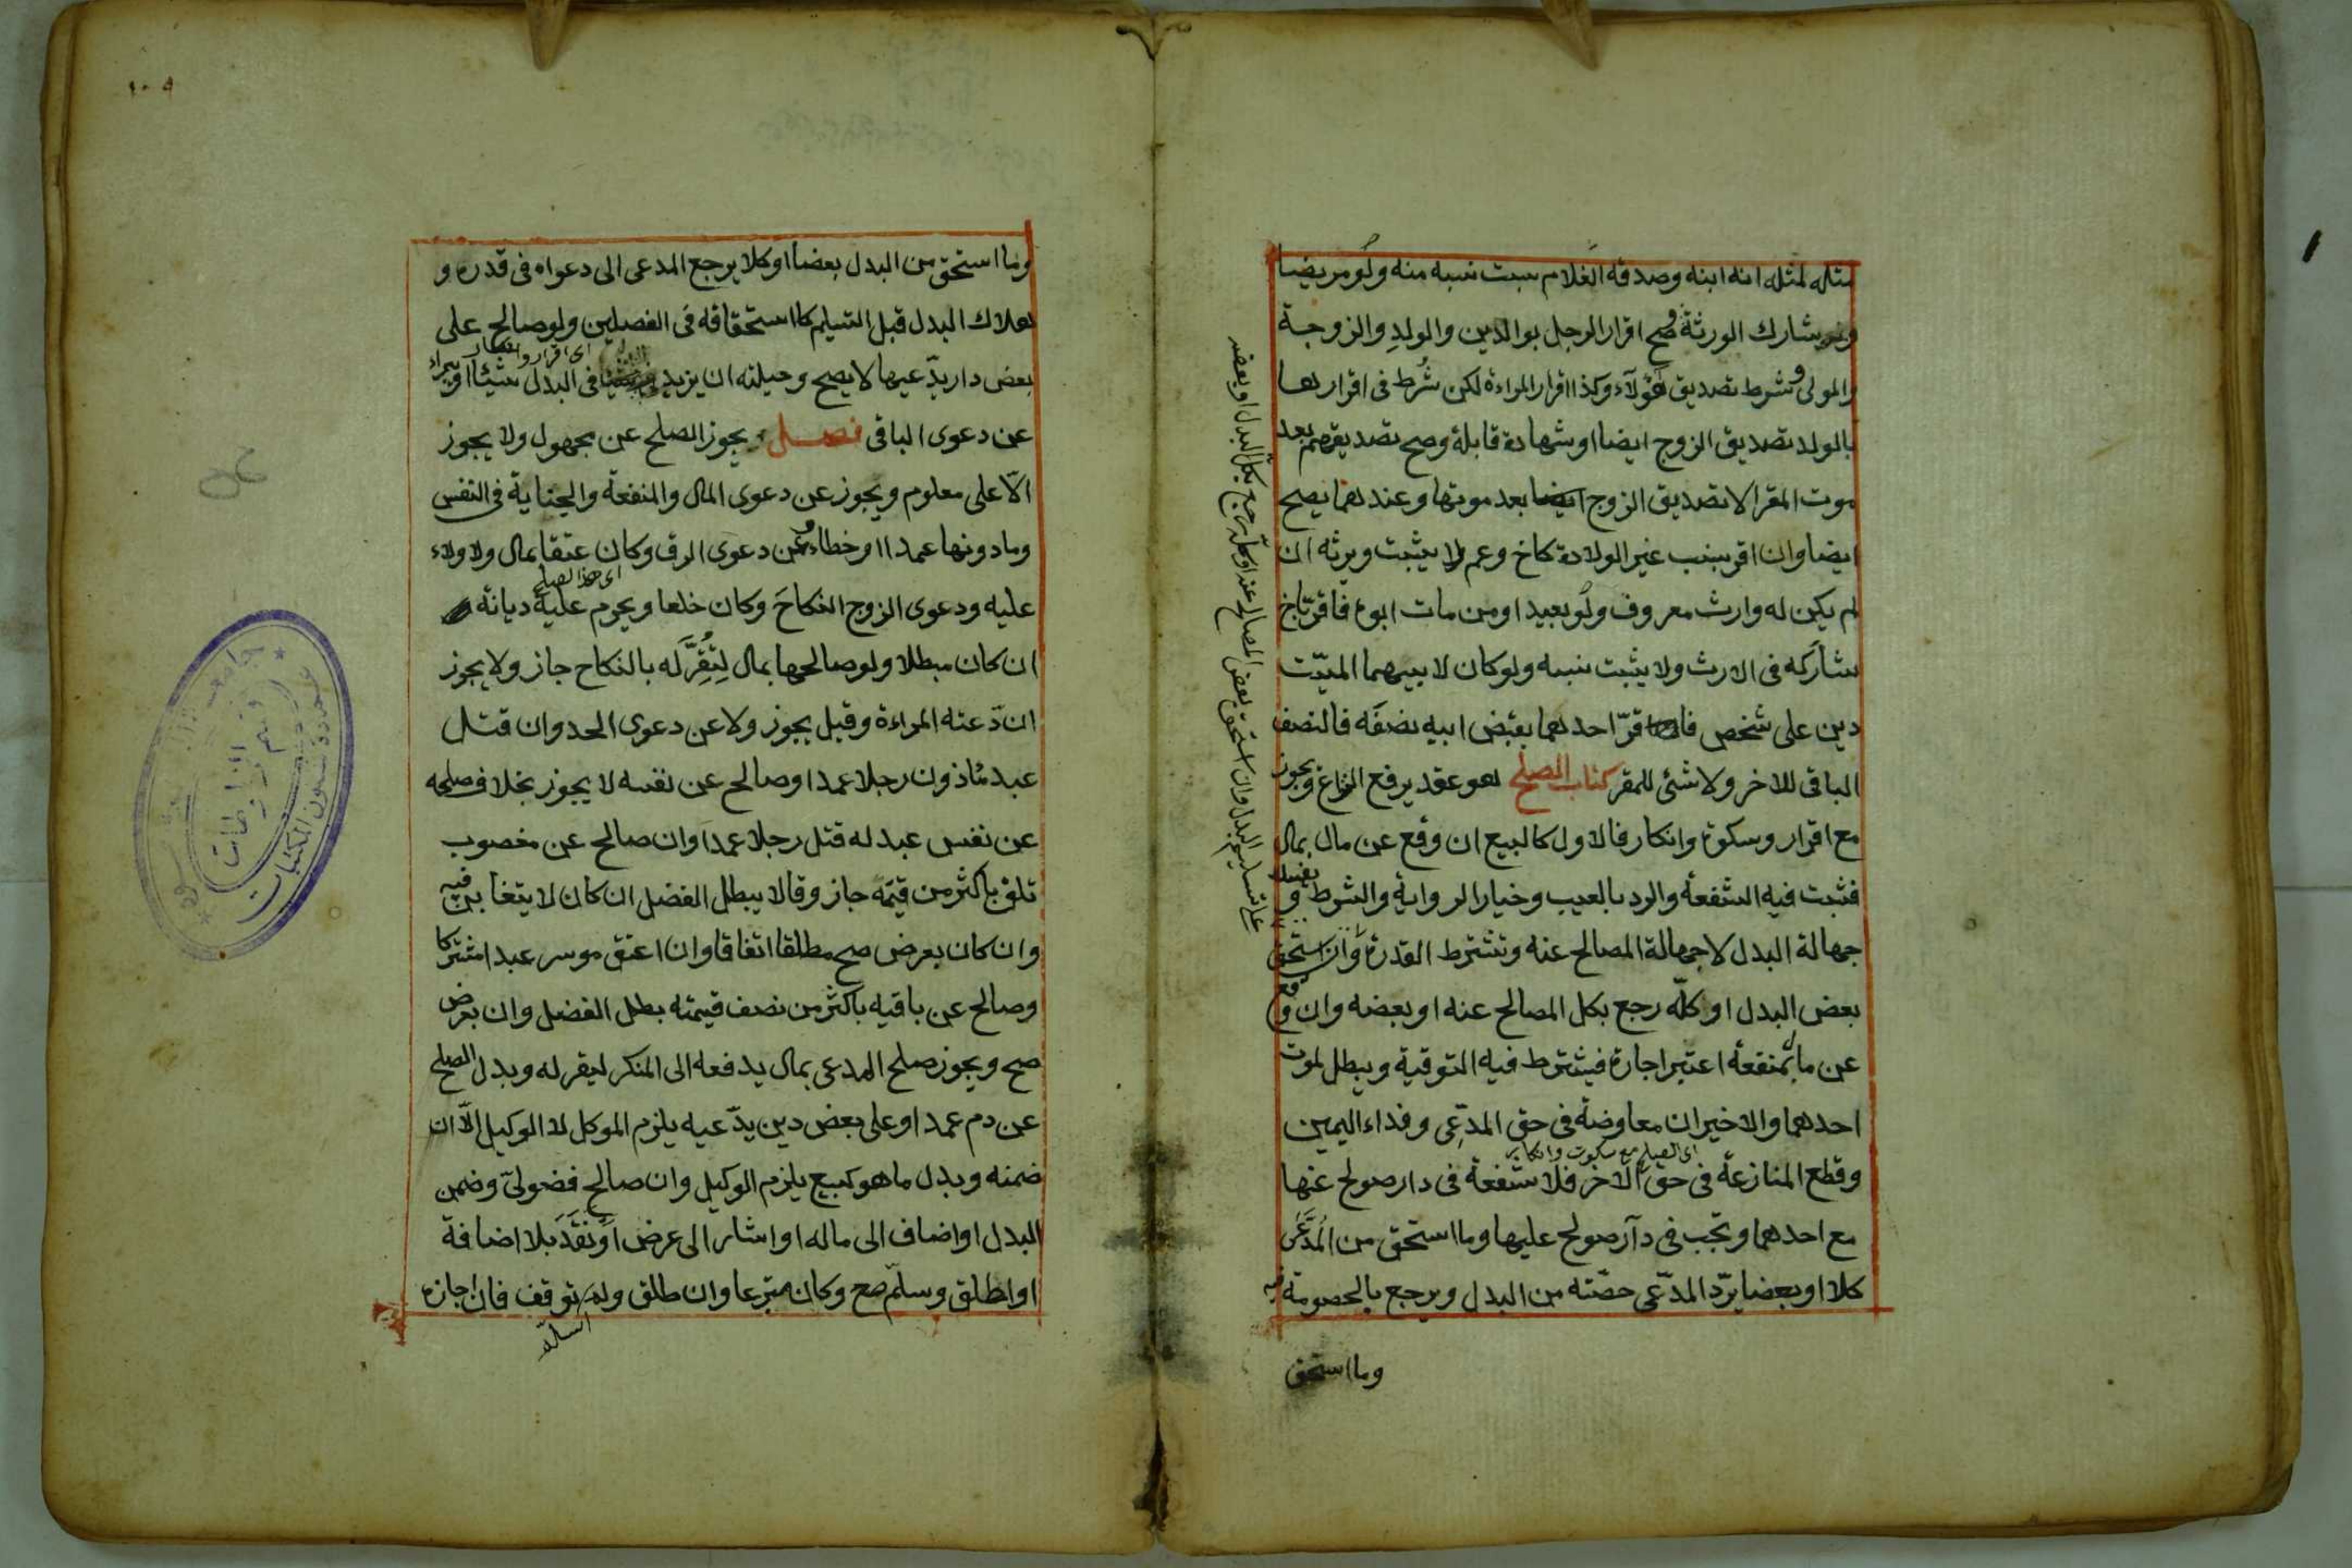 مثله لمثله انه ابنه وصدقه الغلام يثبت نسبه منه ولو مريضا
وشارك الورثة وصح اقرار الرجل بوالدين والولد والزوجة
والمولى وشرط تصديق هؤلاء وكذا اقرار المراءة لكن شرط في اقرارها
بالولد تصديق الزوج ايضا او شهادة قابلة وصح تصديقهم بعد
موت المقر الا تصديق الزوج بعد موتها وعندهما يصح
ايضا وان اقر بنسب غير الولادة كاخ وعم لا يثبت ويرثه ان
لم يكن له وارث معروف ولو بعيدا ومن مات ابوه فاقر باخ
شاركه في الارث ولا يثبت نسبه ولو كان لابيهما الميّت
دين على شخص فاقرّ احدهما بقبض ابيه نصفه فالنصف
الباقي للاخر ولا شئ للمقر كتاب الصلح هو عقد يرفع النزاع ويجوز
مع اقرار وسكوة وانكار فالاول كالبيع ان وقع عن مال بمال
فثبت فيه الشفعة والرد بالعيب وخيار الرواية والشرط و يفسد
جهالة البدل لا جهالة المصالح عنه وتشترط القدرة وان استحق
بعض البدل او كلّه رجع بكل المصالح عنه او بعضه وان وقع
عن مال بمنفعة اعتبر اجارة فيشترط فيه التوقية ويبطل لموت
احدهما والاخيران معاوضة في حق المدّعِى وفداء اليمين
اى الصلح مع سكوت وانكار
وقطع المنازعة في حق الاخر فلا شفعة في دار صولح عنها
مع احدهما وتجب في دار صولح عليها وما استحق من المُدَّعَى
كلا او بعضا يردّ المدّعى حصّته من البدل ويرجع بالخصومة فيه
وما استحق
على تسليم البدل وان استحق بعض المصالح عنه او كلّه رجع بكلّ البدل او بعضه
١٠٩
وما استحق من البدل بعضا او كلا يرجع المدعى الى دعواه في قدره و
هلاك البدل قبل التسليم كاستحقاقه في الفصلين ولو صالح على
اى اقرار وانكار
بعض دار يدّعيها لا يصح وحيلته ان يزيد في البدل شيئا او يبراء
عن دعوى الباقى فصل ويجوز الصلح عن مجهول ولا يجوز
الّا على معلوم ويجوز عن دعوى المال والمنفعة والجناية في النفس
وما دونها عمدا او خطاء وعن دعوى الرق وكان عتقا بمال ولا ولاء
اى هذا الصلح
عليه ودعوى الزوج النكاحَ وكان خلعا ويحرم عليه ديانة
ان كان مبطلا ولو صالحها بمال لِتُقِرَّ له بالنكاح جاز ولا يجوز
ان دّعته المراءة وقيل يجوز ولا عن دعوى الحد وان قتل
عبد مٔاذون رجلا عمدا وصالح عن نفسه لا يجوز بخلاف صلحه
عن نفس عبد له قتل رجلا عمدا وان صالح عن مغصوب
تلف باكثر من قيمته جاز وقالا يبطل الفضل ان كان لا يتغابن فيه
وان كان بعرض صح مطلقا اتفاقا وان اعتق موسر عبدا مشتركا
وصالح عن باقيه باكثر من نصف قيمته بطل الفضل وان بعرض
صح ويجوز صلح المدعى بمال يدفعه الى المنكر ليقر له وبدل الصلح
عن دم عمد او على بعض دين يدّعيه يلزم الموكل لا الوكيل الّا ان
ضمنه وبدل ما هو كبيع يلزم الوكيل وان صالح فضولىّ وضمن
البدل او اضاف الى ماله او اشار الى عرض او نقد بلا اضافة
او اطلق وسلّم صح وكان متبرعا وان طلق ولم توقف فان اجازه
يسلّم
جامعة
قسم المخطوطات
عمادة شئون المكتبات